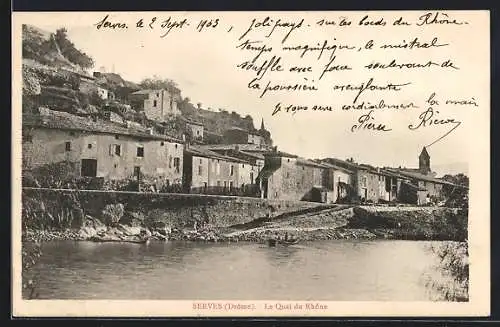 Serves, le 2 Sept. 1903, Joli pays. sur les bords du Rhône.
temps magnifique, le mistral
souffle avec force soulevant de
la poussière aveuglante
je vous serre cordialement la main
Pierre
SERVES (Drôme). - Le Quai du Rhône